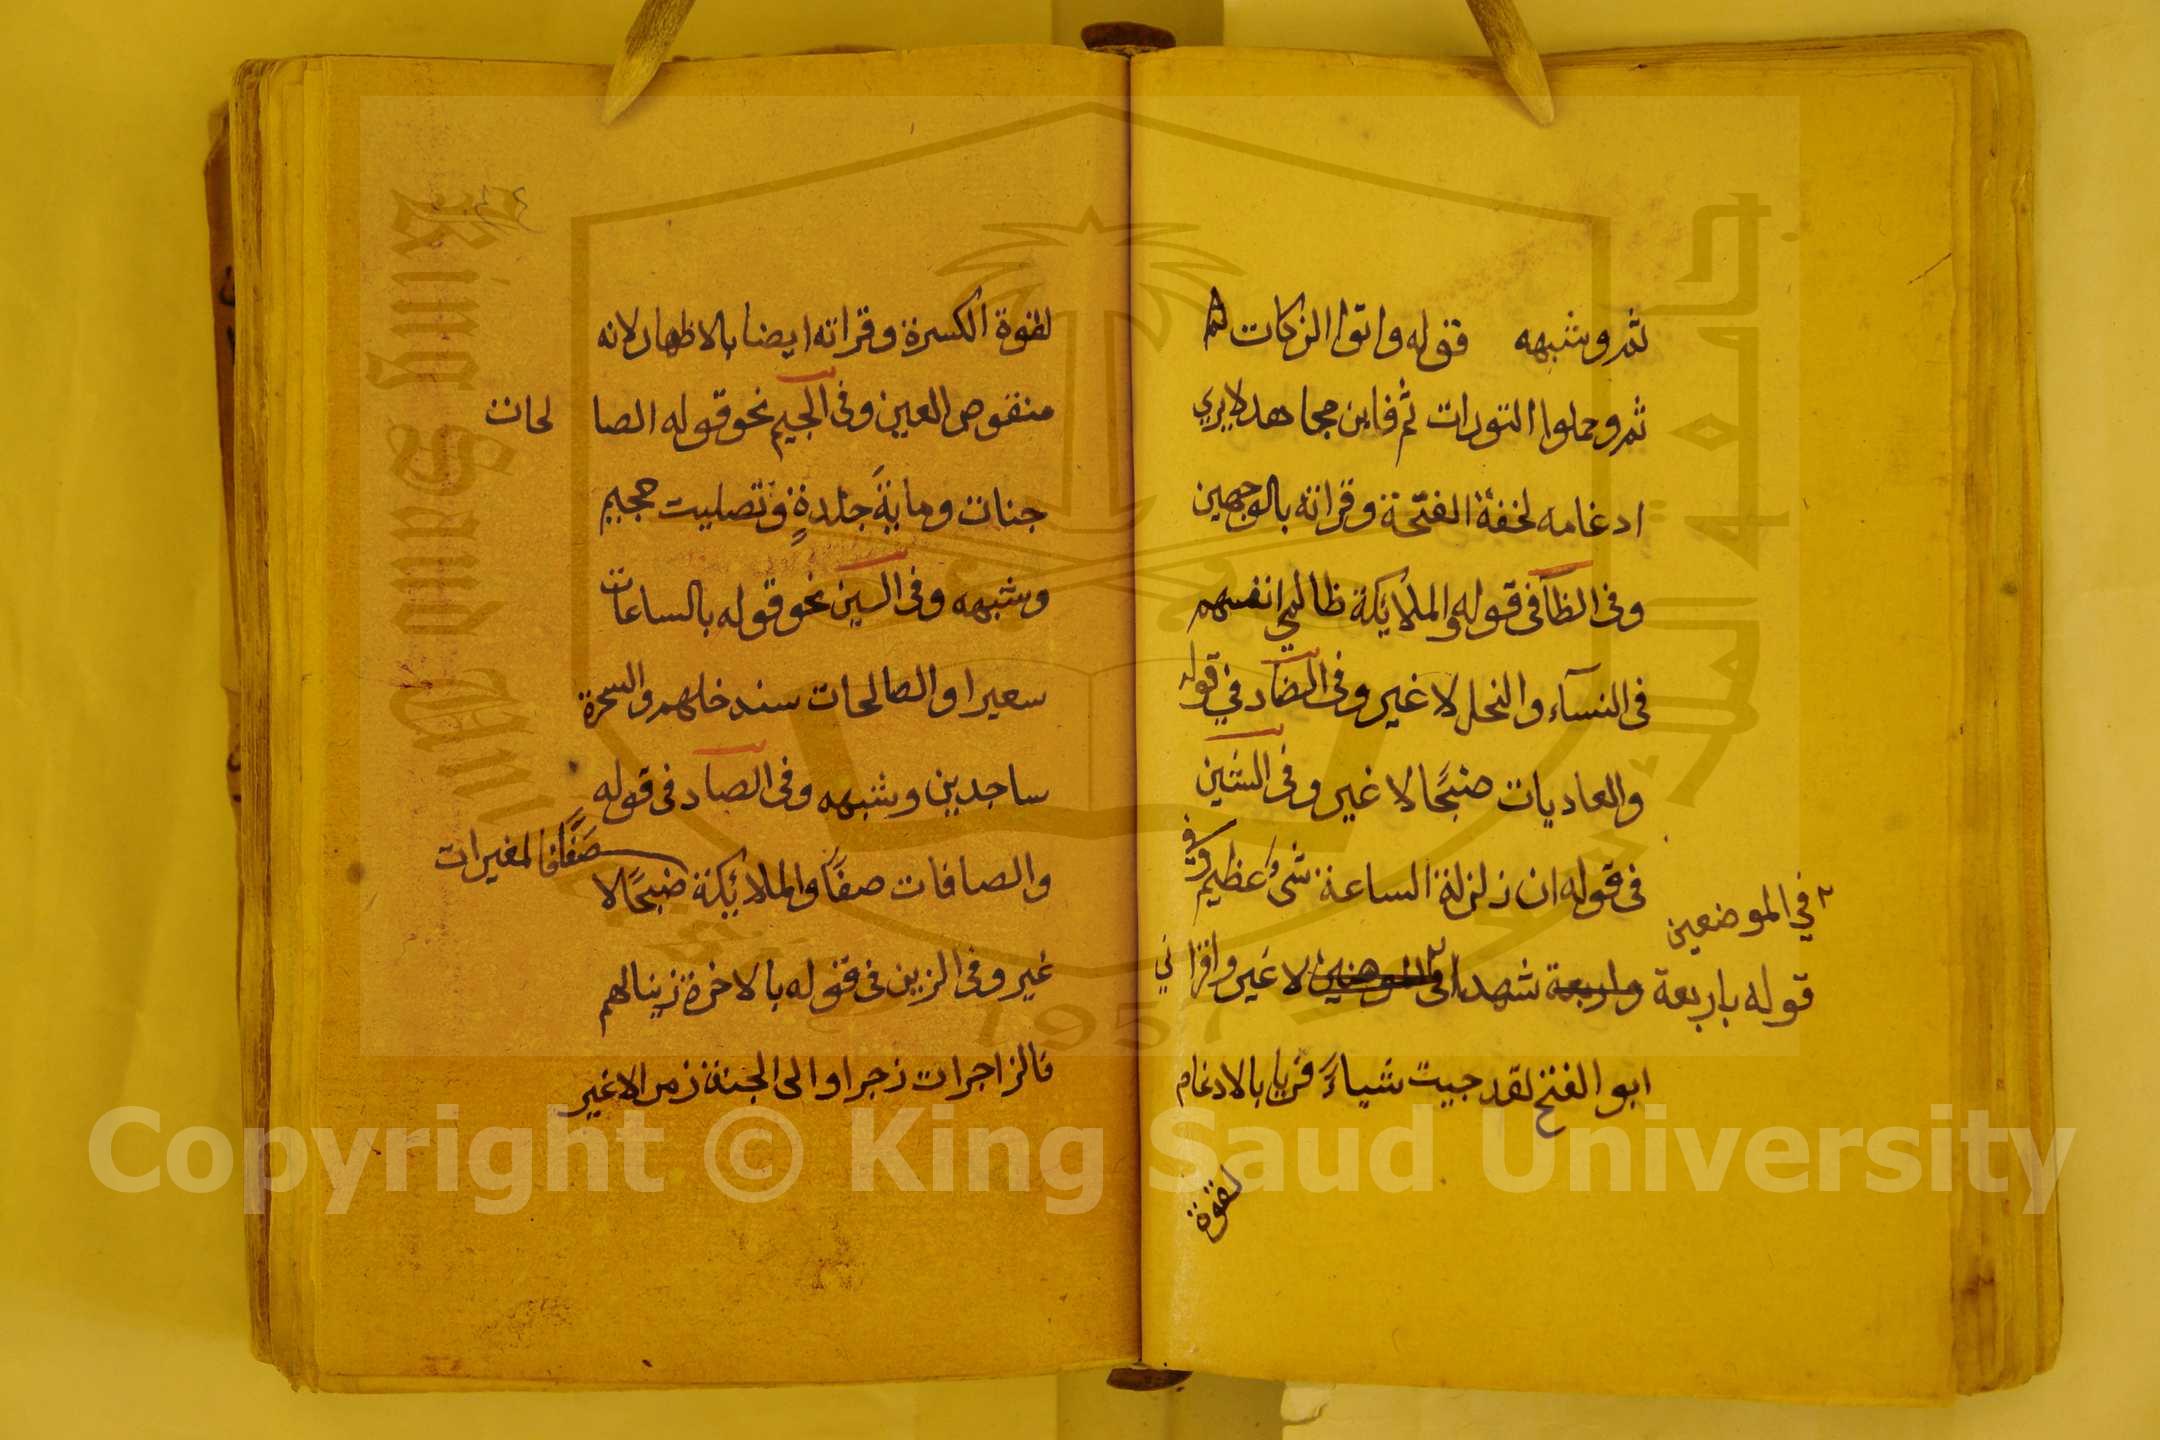 ثم وشبهه فقوله واتوا الزكات ثم
ثم وحملوا التورات ثم فابن مجاهد لا يرى
ادغامه لخفة الفتحة وقراته بالوجهين
وفى الظآ فى قوله والملائكة ظالمي انفسهم
فى النسآء والنحل لا غير وفى الضآد في قوله
والعاديات ضبحًا لا غير وفى الشين
فى قوله ان زلزلة الساعة شىء عظيم وفي
في الموضعين
قوله باربعة واربعة شهدا فى لا غير واقرانى
ابو الفتح لقد جيت شياءً فريا بالادغام
لقوة
لقوة الكسرة وقراته ايضا بالاظهار لانه
منقوص العين وفى الجيم نحو قوله الصا لحات
جنات ومايةَ جلدةٍ وتصليت جحيم
وشبهه وفى السين نحو قوله بالساعات
سعيرا والصالحات سندخلهم والسحرة
ساجدين وشبهه وفى الصاد فى قوله
والصافات صفًا والملائكة صفًا فالمغيرات
ضبحًا لا
غير وفى الزين فى قوله بالاخرة زينا لهم
فالزاجرات زجرا والى الجنة زمرا لا غير
King Saud University
جامعة الملك سعود
1957
Copyright © King Saud University